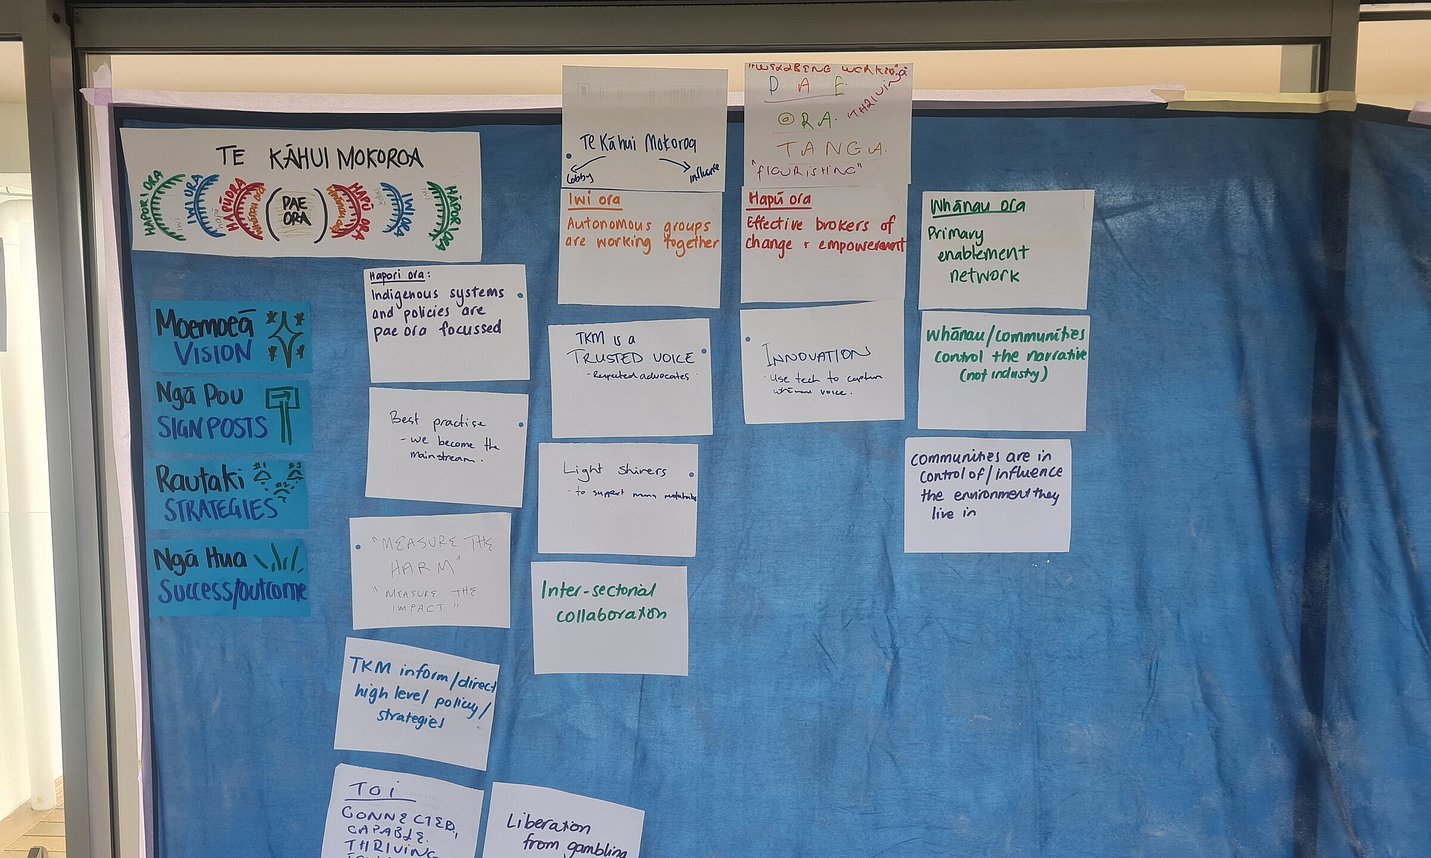 TE KĀHUI MOKOROA
HAPORI ORA
IWI ORA
HAPŪ ORA
PAE
ORA
HAPŪ ORA
IWI ORA
HAPORI ORA
Moemoeā
VISION
Ngā Pou
SIGNPOSTS
Rautaki
STRATEGIES
Ngā Hua
Success/outcome
Hapori ora:
Indigenous systems
and policies are
pae ora focussed
Best practise
- we become the
mainstream.
"MEASURE THE
HARM"
"MEASURE THE
IMPACT"
TKM inform/direct
high level policy/
strategies
TOI
CONNECTED,
CAPABLE.
THRIVING
Liberation
from gambling
Te Kāhui Mokoroa
Lobby
influence
Iwi ora
Autonomous groups
are working together
TKM is a
TRUSTED VOICE
- Respected advocates.
Light Shiners
- to support many
Inter-sectorial
collaboration
"WELLBEING
PAE
ORA.
THRIVING
TANGA.
"FLOURISHING"
Hapū ora
Effective brokers of
change + empowerment
INNOVATION
- Use tech to capture
whānau voice.
Whānau ora
Primary
enablement
network
Whānau/communities
control the narrative
(not industry)
Communities are in
control of/influence
the environment they
live in